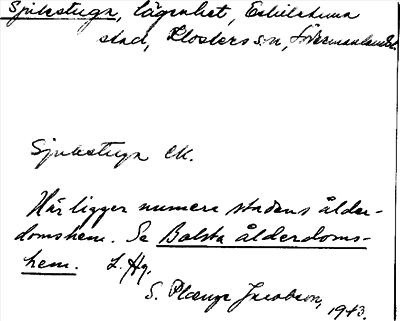 Sjukstuga, lägenhet, Eskilstuna
stad, Klosters sn, Södermanland.
Sjukstuga EK.
Här ligger numera stadens ålder-
domshem. Se Balsta ålderdoms-
hem. L. Hg.
S. Jacobson, 1943.